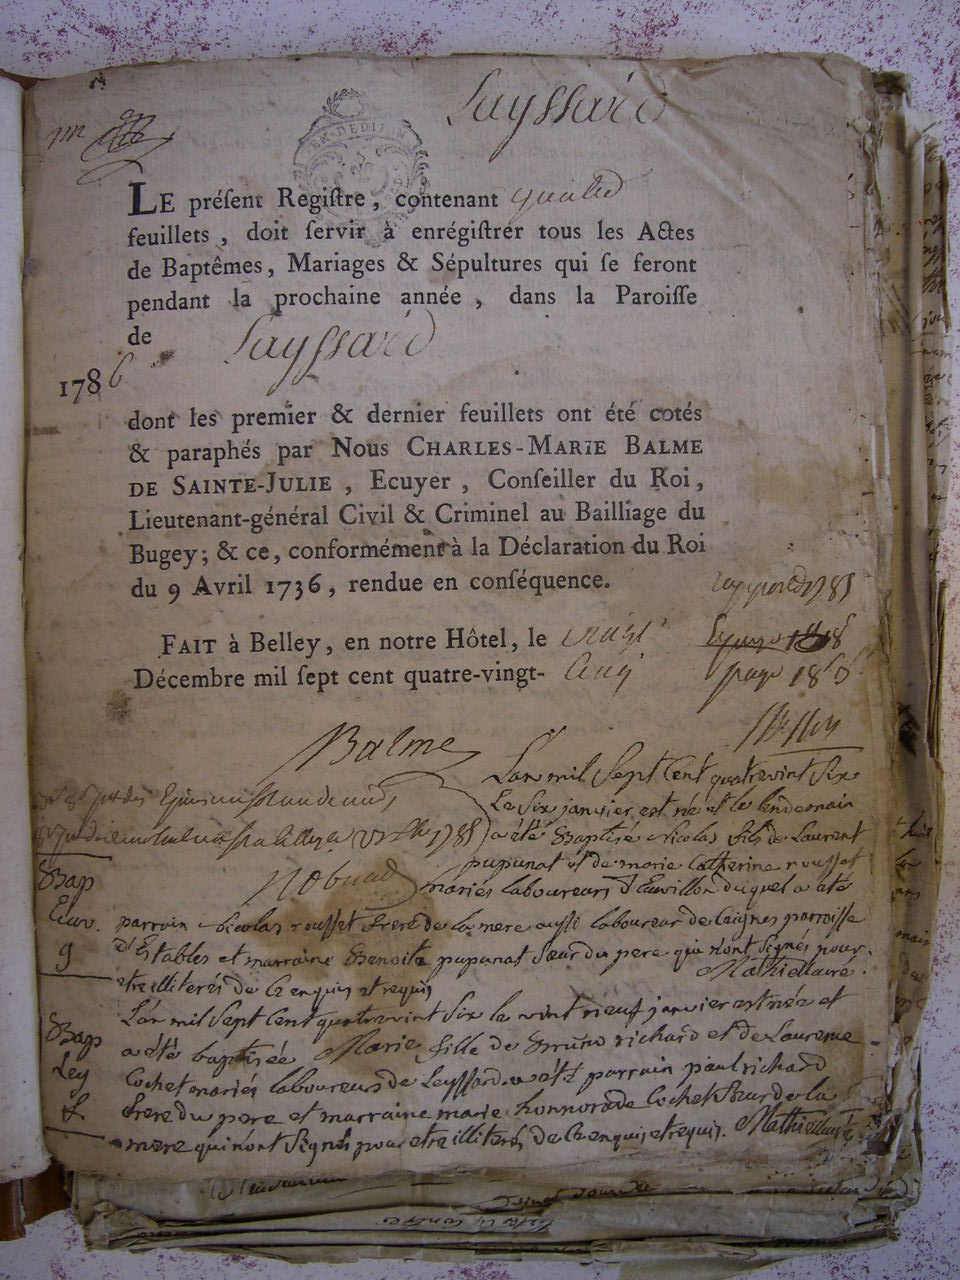 Layssard
EN-DEDIT-IN
LE préſent Regiſtre, contenant quatre
feuillets, doit ſervir à enrégiſtrer tous les Actes
de Baptêmes, Mariages & Sépultures qui ſe feront
pendant la prochaine année, dans la Paroiſſe
de Layssard
1786
dont les premier & dernier feuillets ont été cotés
& paraphés par Nous CHARLES-MARIE BALME
DE SAINTE-JULIE, Ecuyer, Conſeiller du Roi,
Lieutenant-général Civil & Criminel au Bailliage du
Bugey; & ce, conformément à la Déclaration du Roi
du 9 Avril 1736, rendue en conſéquence.
FAIT à Belley, en notre Hôtel, le vingt
Décembre mil ſept cent quatre-vingt- cinq
Balme
L'an mil Sept Cent quatrevint Six
Le Six janvier est né et le lendemain
a été Baptisé Nicolas fils de Laurent
pupunat et de marie Catherine rousset
Bap
mariés laboureurs duquel a été
parrain Nicolas rousset frere de la mere aussi laboureur de parroisse
9
d'Estables et marraine Benoite pupunat Sœur du pere qui n'ont Signés pour
etre illiterés de ce enquis et requis
Mathieu curé.
L'an mil Sept Cent quatrevint Six le vint neuf janvier est née et
Bap
a été baptisée Marie fille de Bruno richard et de Laurence
Ley
Cochet mariés laboureurs de Leyssard a été parrain paul richard
frere du pere et marraine marie honnorade Cochet Sœur de la
mere qui n'ont Signés pour etre illiterés de Ce enquis et requis.